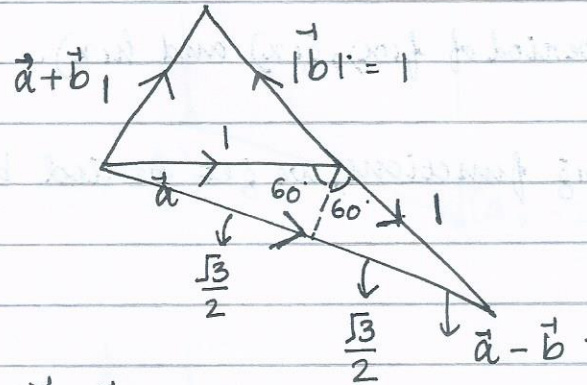 a⃗ + b⃗ 1
|b⃗| = 1
1
a⃗
60°
60°
1
√3/2
√3/2
a⃗ - b⃗